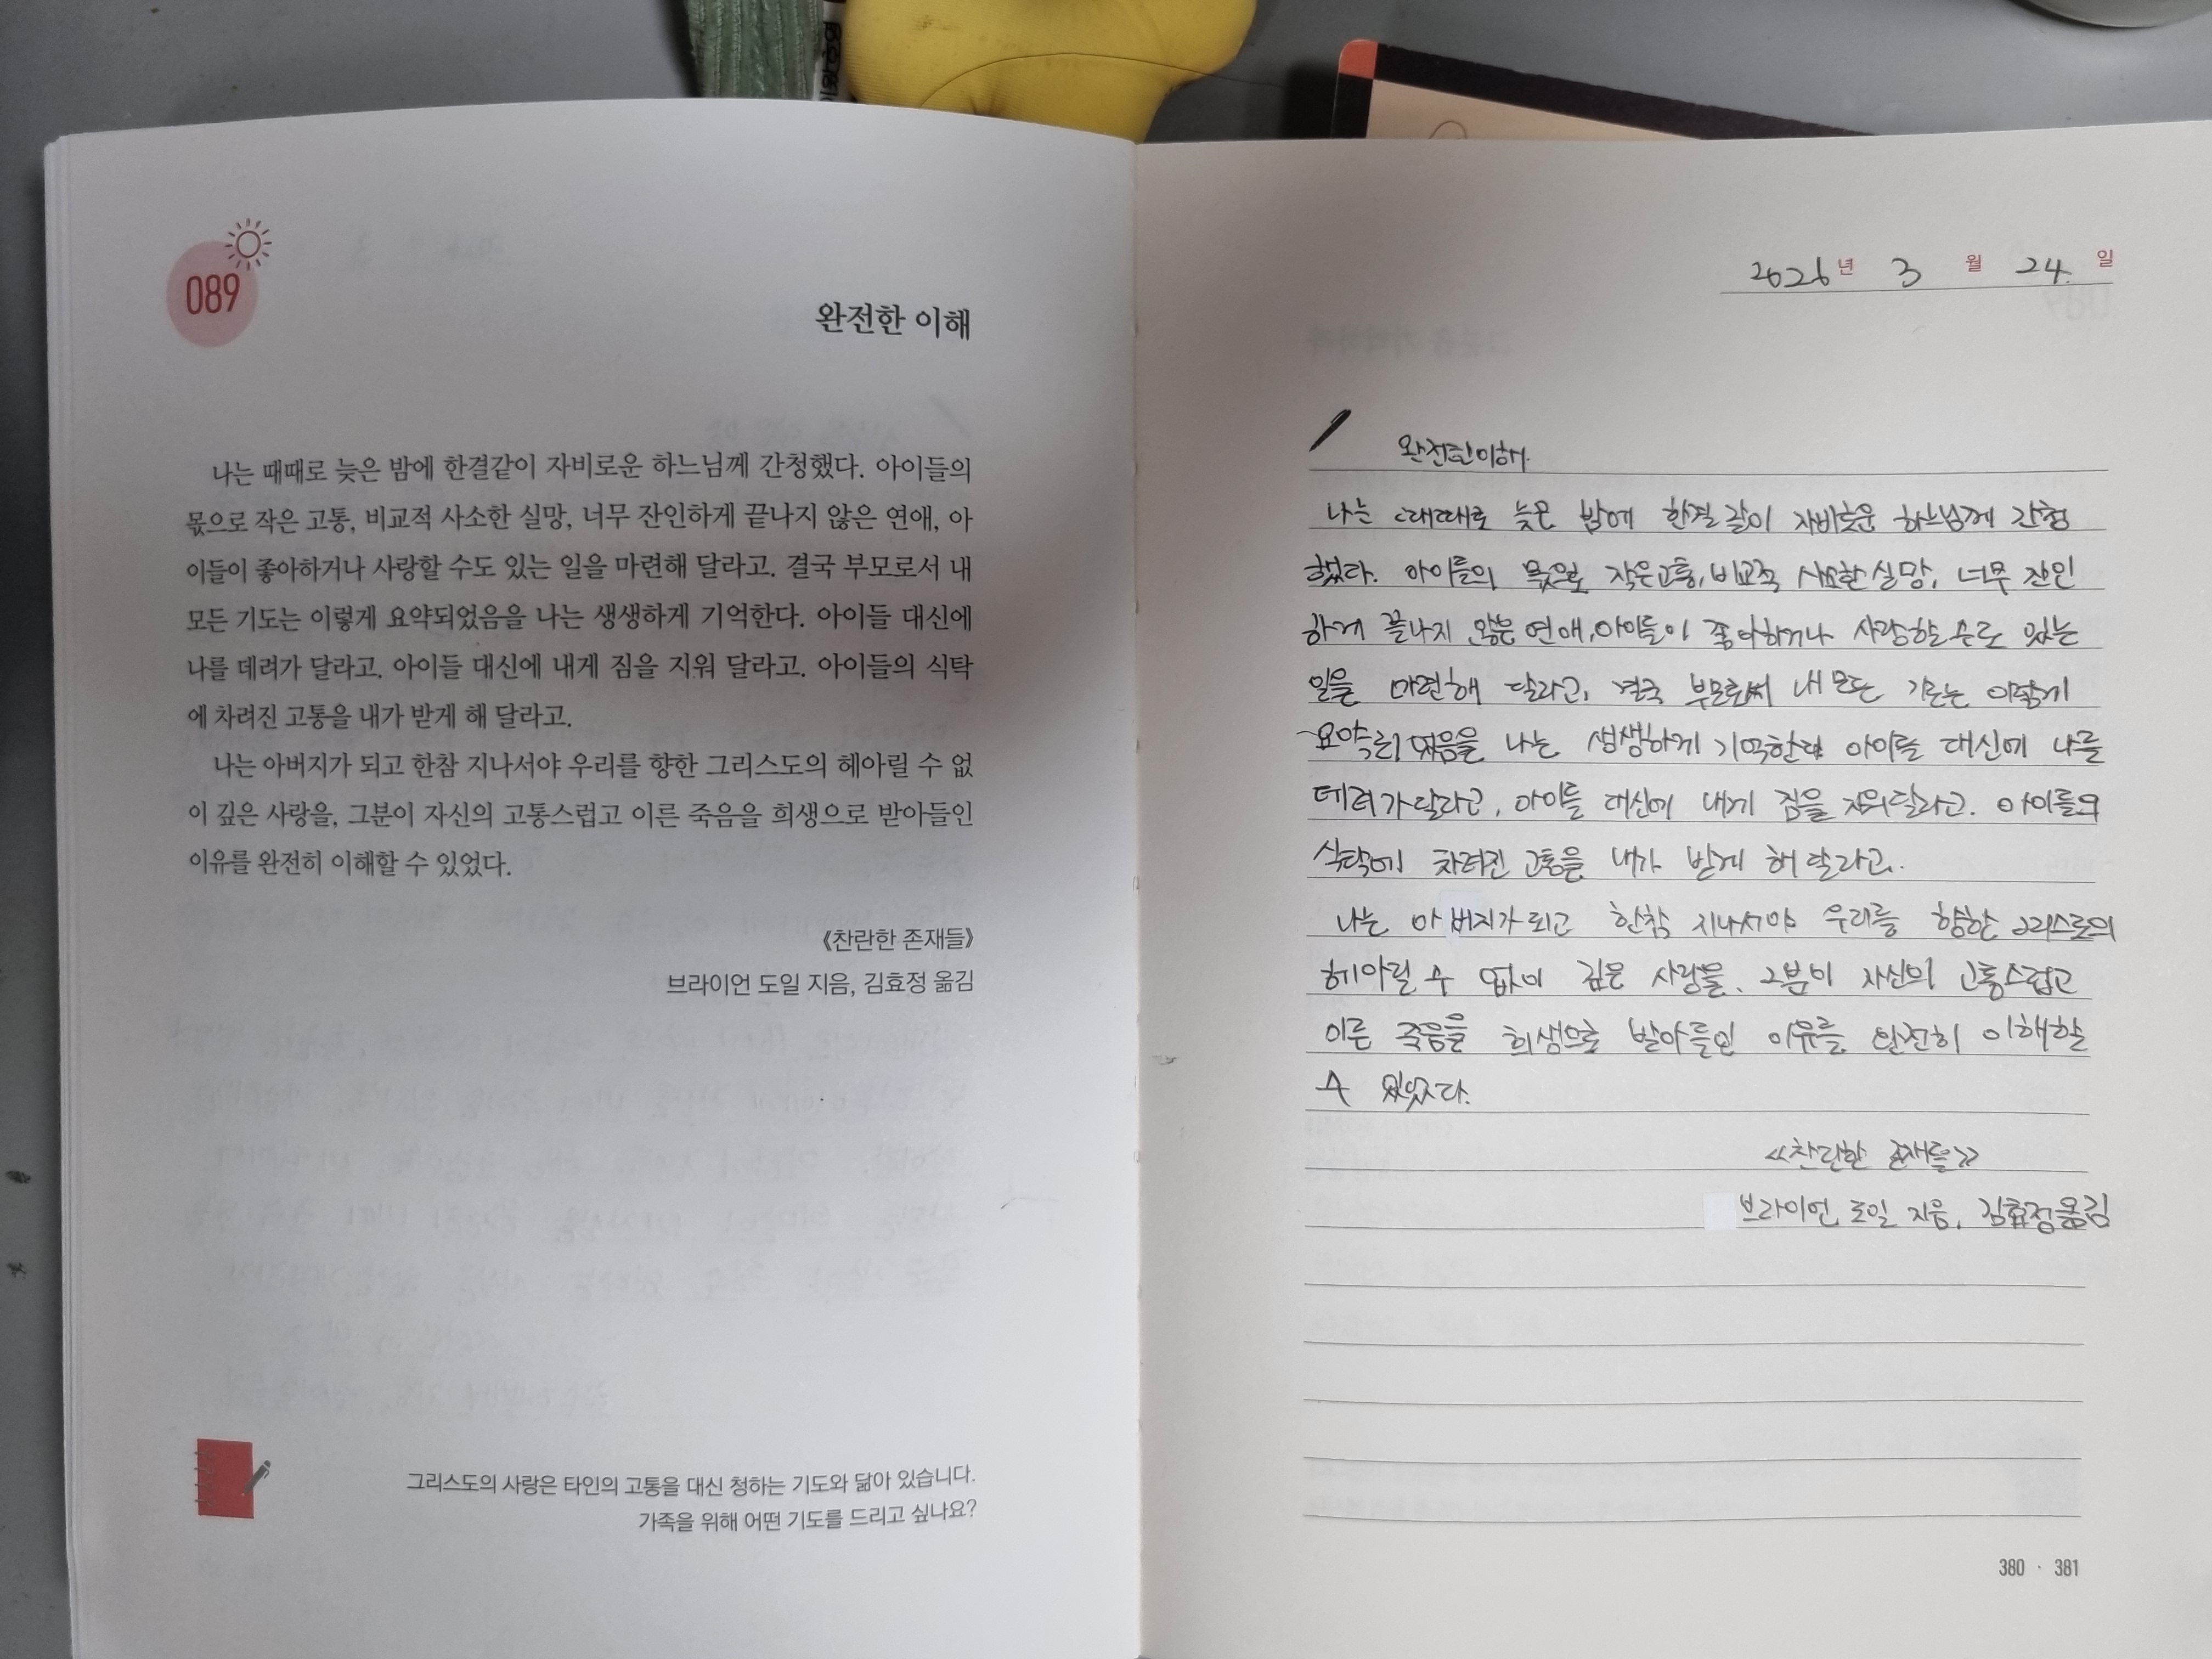 089
완전한 이해
나는 때때로 늦은 밤에 한결같이 자비로운 하느님께 간청했다. 아이들의
몫으로 작은 고통, 비교적 사소한 실망, 너무 잔인하게 끝나지 않은 연애, 아
이들이 좋아하거나 사랑할 수도 있는 일을 마련해 달라고. 결국 부모로서 내
모든 기도는 이렇게 요약되었음을 나는 생생하게 기억한다. 아이들 대신에
나를 데려가 달라고. 아이들 대신에 내게 짐을 지워 달라고. 아이들의 식탁
에 차려진 고통을 내가 받게 해 달라고.
나는 아버지가 되고 한참 지나서야 우리를 향한 그리스도의 헤아릴 수 없
이 깊은 사랑을, 그분이 자신의 고통스럽고 이른 죽음을 희생으로 받아들인
이유를 완전히 이해할 수 있었다.
《찬란한 존재들》
브라이언 도일 지음, 김효정 옮김
그리스도의 사랑은 타인의 고통을 대신 청하는 기도와 닮아 있습니다.
가족을 위해 어떤 기도를 드리고 싶나요?
2026년 3월 24. 일
완전한 이해.
나는 때때로 늦은 밤에 한결같이 자비로운 하느님께 간청
했다. 아이들의 몫으로 작은 고통, 비교적 사소한 실망, 너무 잔인
하게 끝나지 않은 연애, 아이들이 좋아하거나 사랑할 수도 있는
일을 마련해 달라고, 결국 부모로써 내 모든 기도는 이렇게
요약되었음을 나는 생생하게 기억한다 아이들 대신에 나를
데려가 달라고, 아이들 대신에 내게 짐을 지워달라고. 아이들의
식탁에 차려진 고통을 내가 받게 해 달라고.
나는 아버지가 되고 한참 지나서야 우리를 향한 그리스도의
헤아릴 수 없이 깊은 사랑을, 그분이 자신의 고통스럽고
이른 죽음을 희생으로 받아들인 이유를 완전히 이해할
수 있었다.
《찬란한 존재들》
브라이언 도일 지음, 김효정 옮김
380 · 381